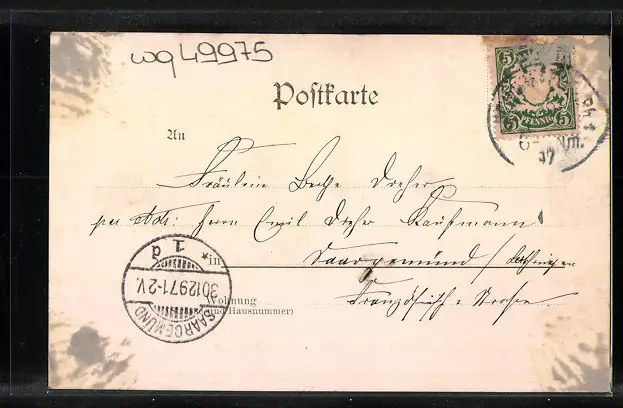 wq49975
Postkarte
5 5
5 PFENNIG 5
An
Fräulein Berthe Dreher
per Adr: Herrn Emil Dreher Kaufmann
in Saargemünd / Lothringen
(Wohnung
und Hausnummer)
Französische Strasse
SAARGEMÜND
1 d
30 12 97 1-2 V.
97